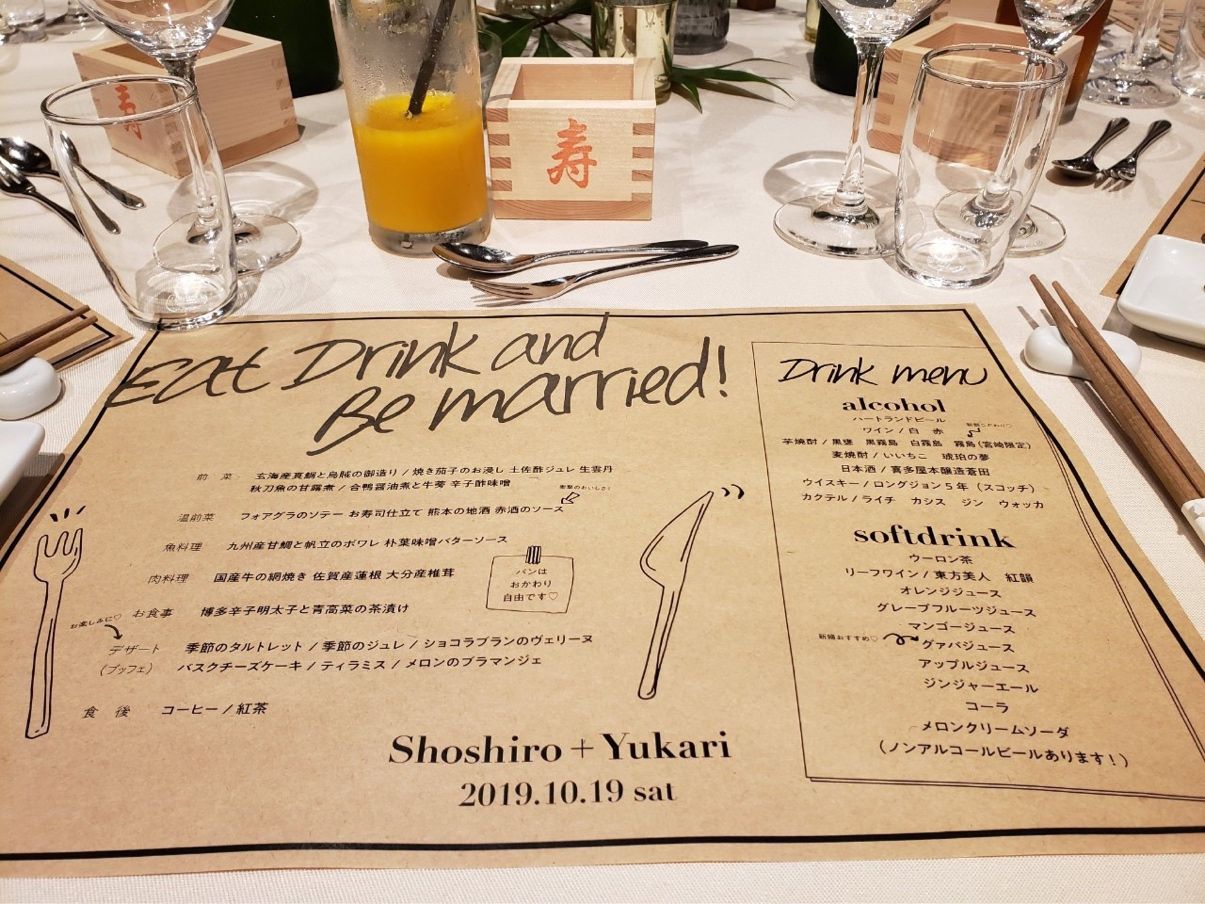 寿
寿
Eat Drink and
Be married!
前 菜 玄海産真鯛と烏賊の御造り / 焼き茄子のお浸し 土佐酢ジュレ 生雲丹
秋刀魚の甘露煮 / 合鴨醤油煮と牛蒡 辛子酢味噌
衝撃のおいしさ!
温前菜 フォアグラのソテー お寿司仕立て 熊本の地酒 赤酒のソース
魚料理 九州産甘鯛と帆立のポワレ 朴葉味噌バターソース
肉料理 国産牛の網焼き 佐賀産蓮根 大分産椎茸
パンは
おかわり
自由です♡
お食事 博多辛子明太子と青高菜の茶漬け
お楽しみに♡
デザート 季節のタルトレット / 季節のジュレ / ショコラブランのヴェリーヌ
(ブッフェ) バスクチーズケーキ / ティラミス / メロンのブラマンジェ
食 後 コーヒー / 紅茶
Shoshiro + Yukari
2019.10.19 sat
Drink menu
alcohol
ハートランドビール
ワイン / 白 赤
芋焼酎 / 黒甕 黒霧島 白霧島 霧島(宮崎限定)
麦焼酎 / いいちこ 琥珀の夢
日本酒 / 喜多屋本醸造蒼田
ウイスキー / ロングジョン5年(スコッチ)
カクテル / ライチ カシス ジン ウォッカ
softdrink
ウーロン茶
リーフワイン / 東方美人 紅韻
オレンジジュース
グレープフルーツジュース
マンゴージュース
新婦おすすめ♡
グァバジュース
アップルジュース
ジンジャーエール
コーラ
メロンクリームソーダ
(ノンアルコールビールあります!)